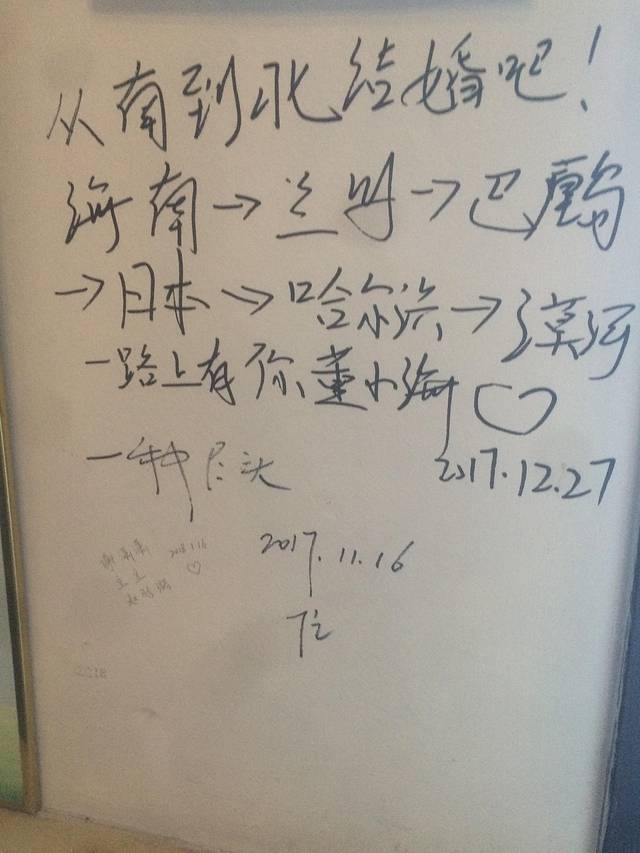 从南到北结婚吧!
海南→兰州→巴厘岛
→日本→哈尔滨→漠河
一路上有你董小海♡
2017.12.27
一种尽头
2017.11.16
2018.1.16
♡
2018